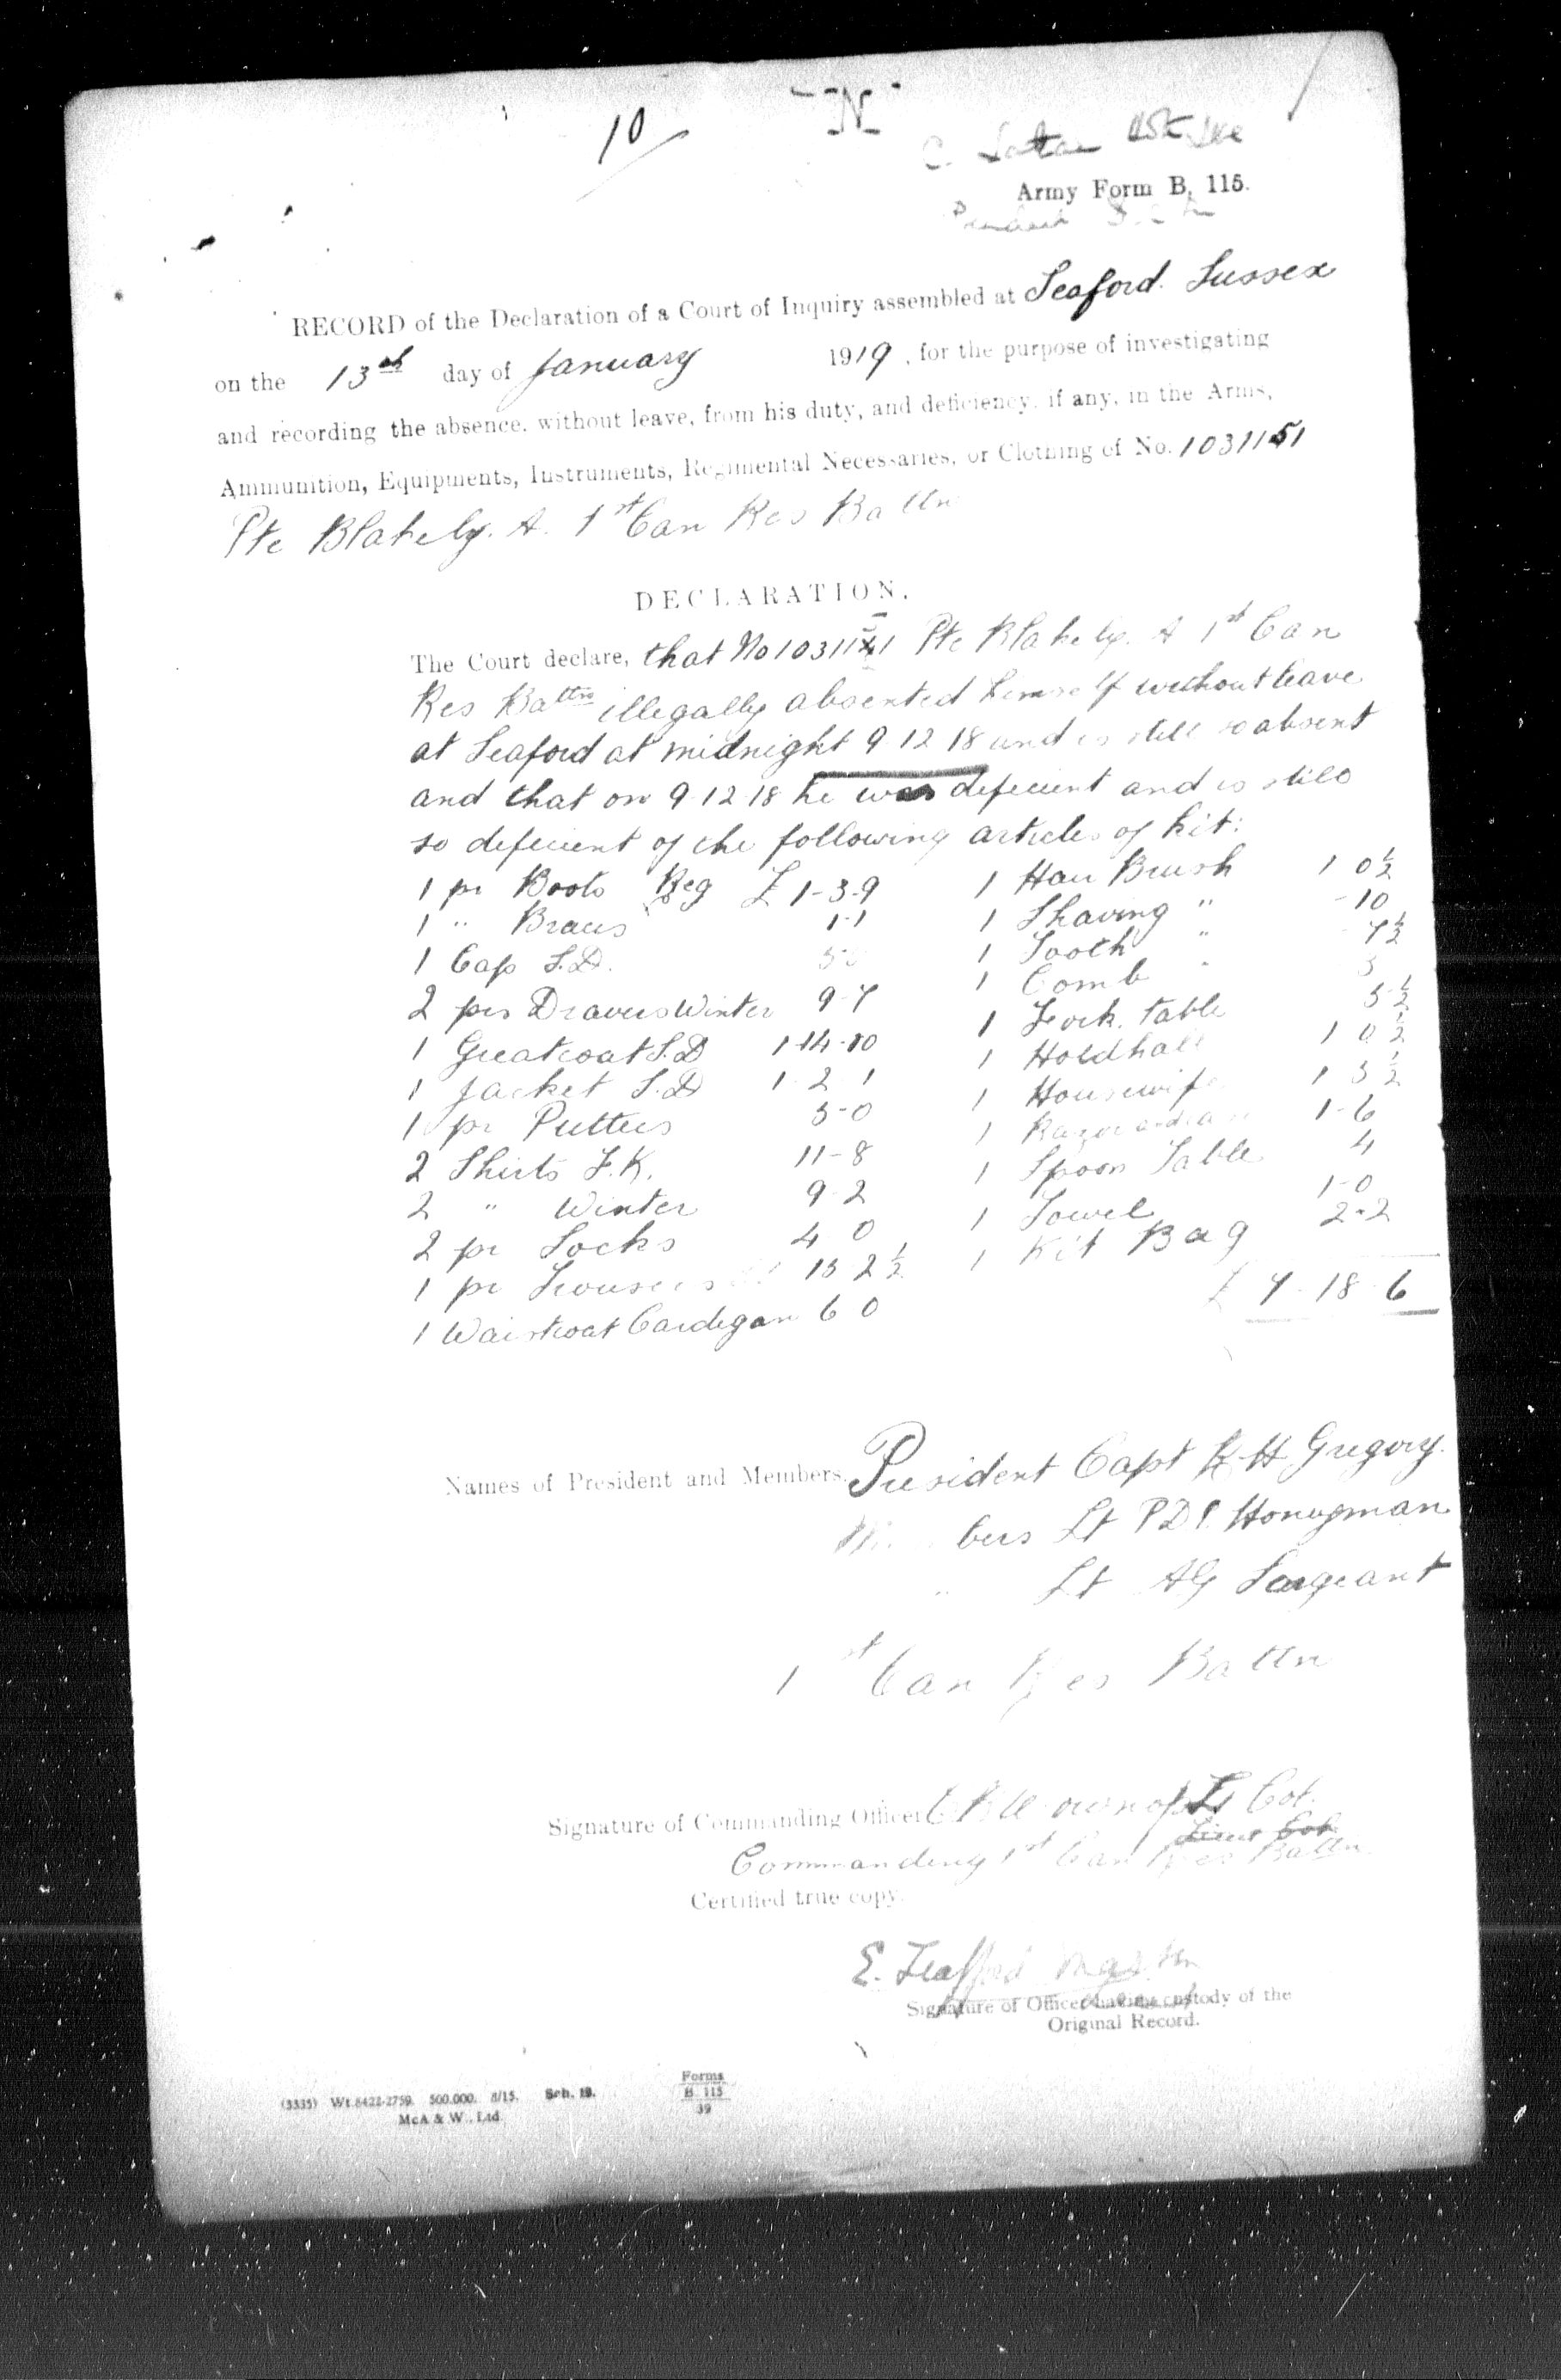 10
"N"
Army Form B. 115.
RECORD of the Declaration of a Court of Inquiry assembled at Seaford. Sussex
on the 13th day of January 1919, for the purpose of investigating
and recording the absence, without leave, from his duty, and deficiency, if any, in the Arms,
Ammunition, Equipments, Instruments, Regimental Necessaries, or Clothing of No. 1031151
Pte Blakely. A. 1st Can Res Battn
DECLARATION.
The Court declare, that No 1031151 Pte Blakely. A 1st Can
Res Battn illegally absented himself without leave
at Seaford at midnight 9 12 18 and is still so absent
and that on 9-12-18 he was deficient and is still
so deficient of the following articles of kit:
1 pr Boots Reg £ 1-3-9 1 Hair Brush 1 0½
1 " Braces 1-1 1 Shaving " -10
1 Cap S.D. 1 Tooth " 7½
2 prs Drawers Winter 9-7 1 Comb 5
1 Greatcoat S.D 1-14-10 1 Fork. table 5½
1 Jacket S.D 1-2-1 1 Holdhall 1 0½
1 pr Puttees 5-0 1 Housewife 1 5½
2 Shirts F.K. 11-8 1 Razor and case 1-6
2 " Winter 9-2 1 Spoon Table 4
2 pr Socks 4 0 1 Towel 1-0
1 pr Trousers 13 2½ 1 Kit Bag 2-2
1 Waistcoat Cardegan 6 0 £ 7-18-6
Names of President and Members. President Capt R H Gregory.
Members Lt P D I. Honeyman
" Lt AG Sargeant
1st Can Res Battn
Signature of Commanding Officer Lt Col.
Lieut Col.
Commanding 1st Can Res Battn.
Certified true copy.
Signature of Officer having custody of the
Original Record.
(3335) Wt. 8422-2759. 500,000. 8/15. Sch. 19. Forms
McA & W., Ltd. B. 115
39